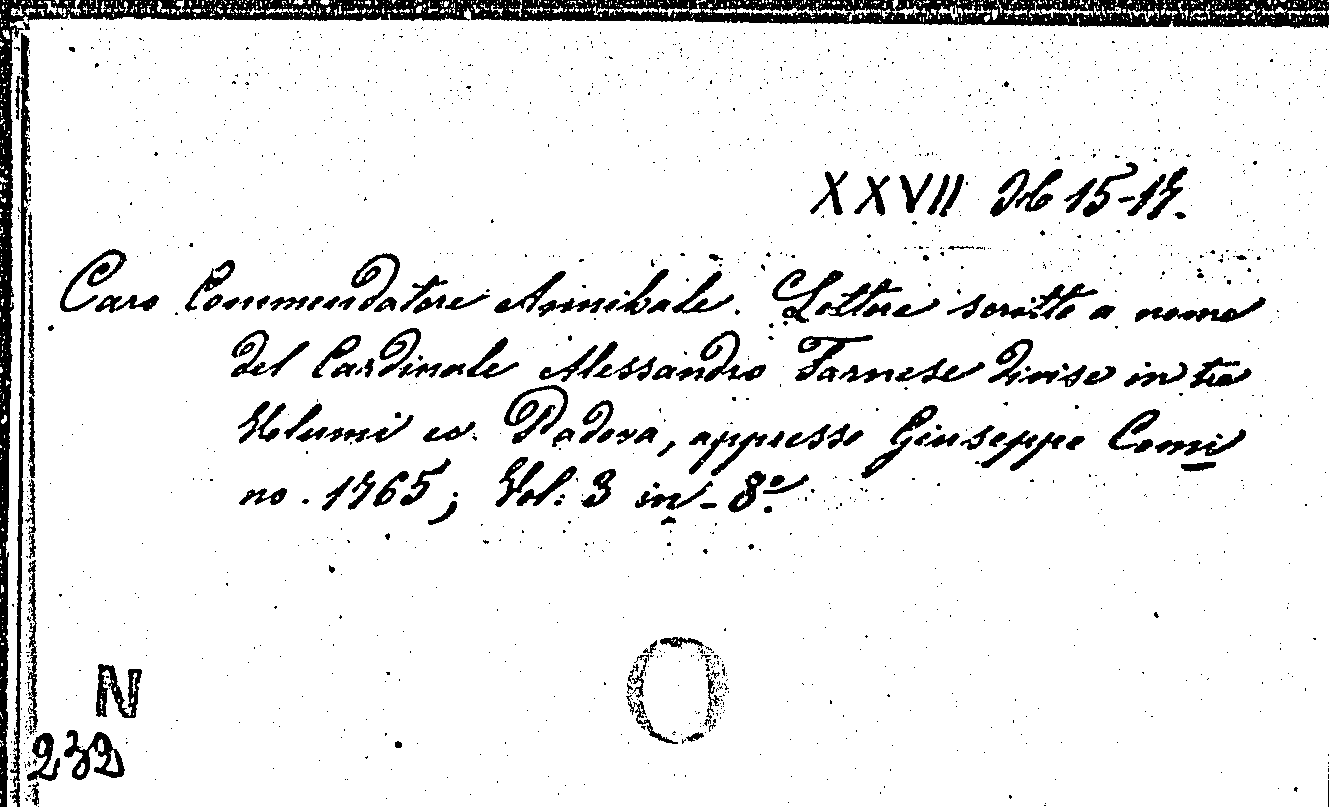 XXVII Hb 15-17.
Caro Commendatore Annibale. Lettere scritte a nome
del Cardinale Alessandro Farnese divise in tre
Volumi ec. Padova, appresso Giuseppe Comi
no. 1765; Vol: 3 in-8º.
N
232